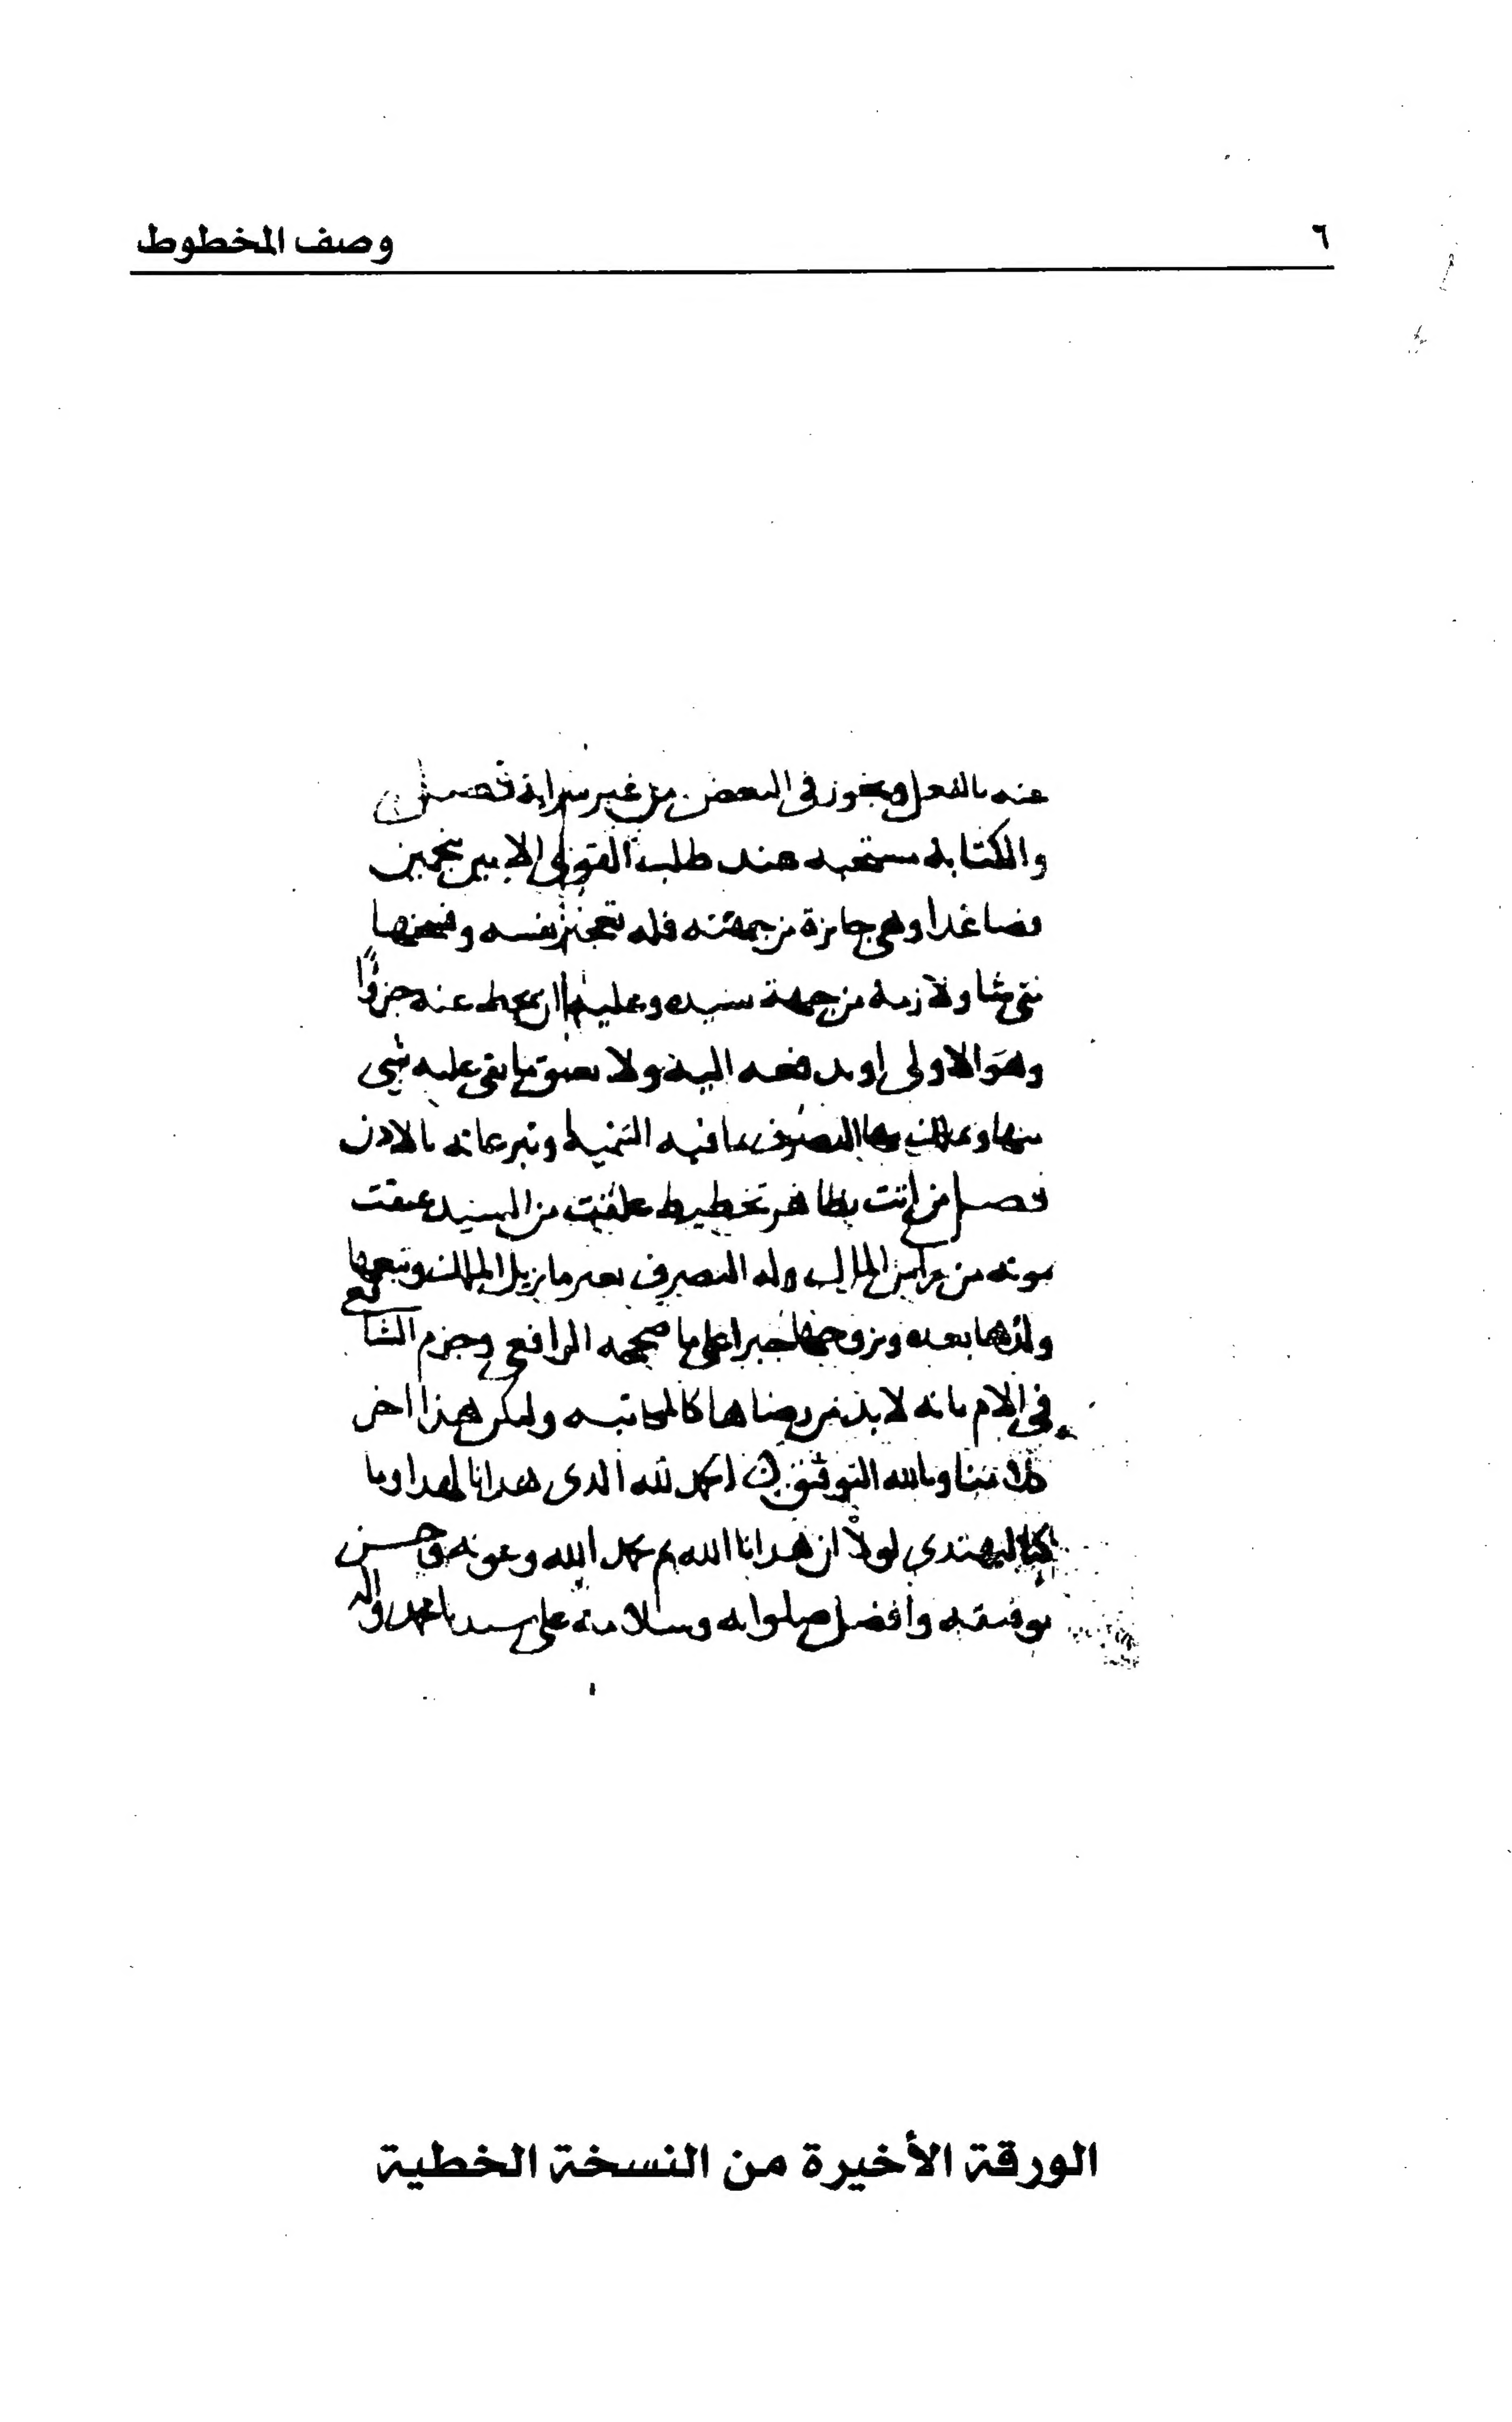 ٦
وصف المخطوط
عنه بالفعل ويجوز في البعض من غير سراية فصل
والكتابة مستحبة عند طلب القوي الامين بنجمين
فصاعدا وهي جائزة من جهته فله تعجيز نفسه وفسخها
متى شا ولازمة من جهة سيده وعليه ان يحط عنه جزوًا
وهو الاولى او يدفعه اليه ولا يعتق ما بقي عليه شي
منها ويملك بها التصرف بما فيه التنمية وتبرعاته بالاذن
فصل من اتت بظاهر تخطيط علقت من السيد عتقت
بموته من راس المال وله التصرف بغير ما يزيل الملك ويتبعها
ولدها بعده ويزوجها جبرا على ما صححه الرافعي وجزم الشافعي
في الام بانه لا بد من رضاها كالمكاتبه وليكن هذا اخر
كلامنا وبالله التوفيق الحمد لله الذي هدانا لهذا وما
كنا لنهتدي لولا ان هدانا الله تم بحمد الله وعونه وحسن
توفيقه وافضل صلواته وسلامه على سيدنا محمد واله
الورقة الأخيرة من النسخة الخطية